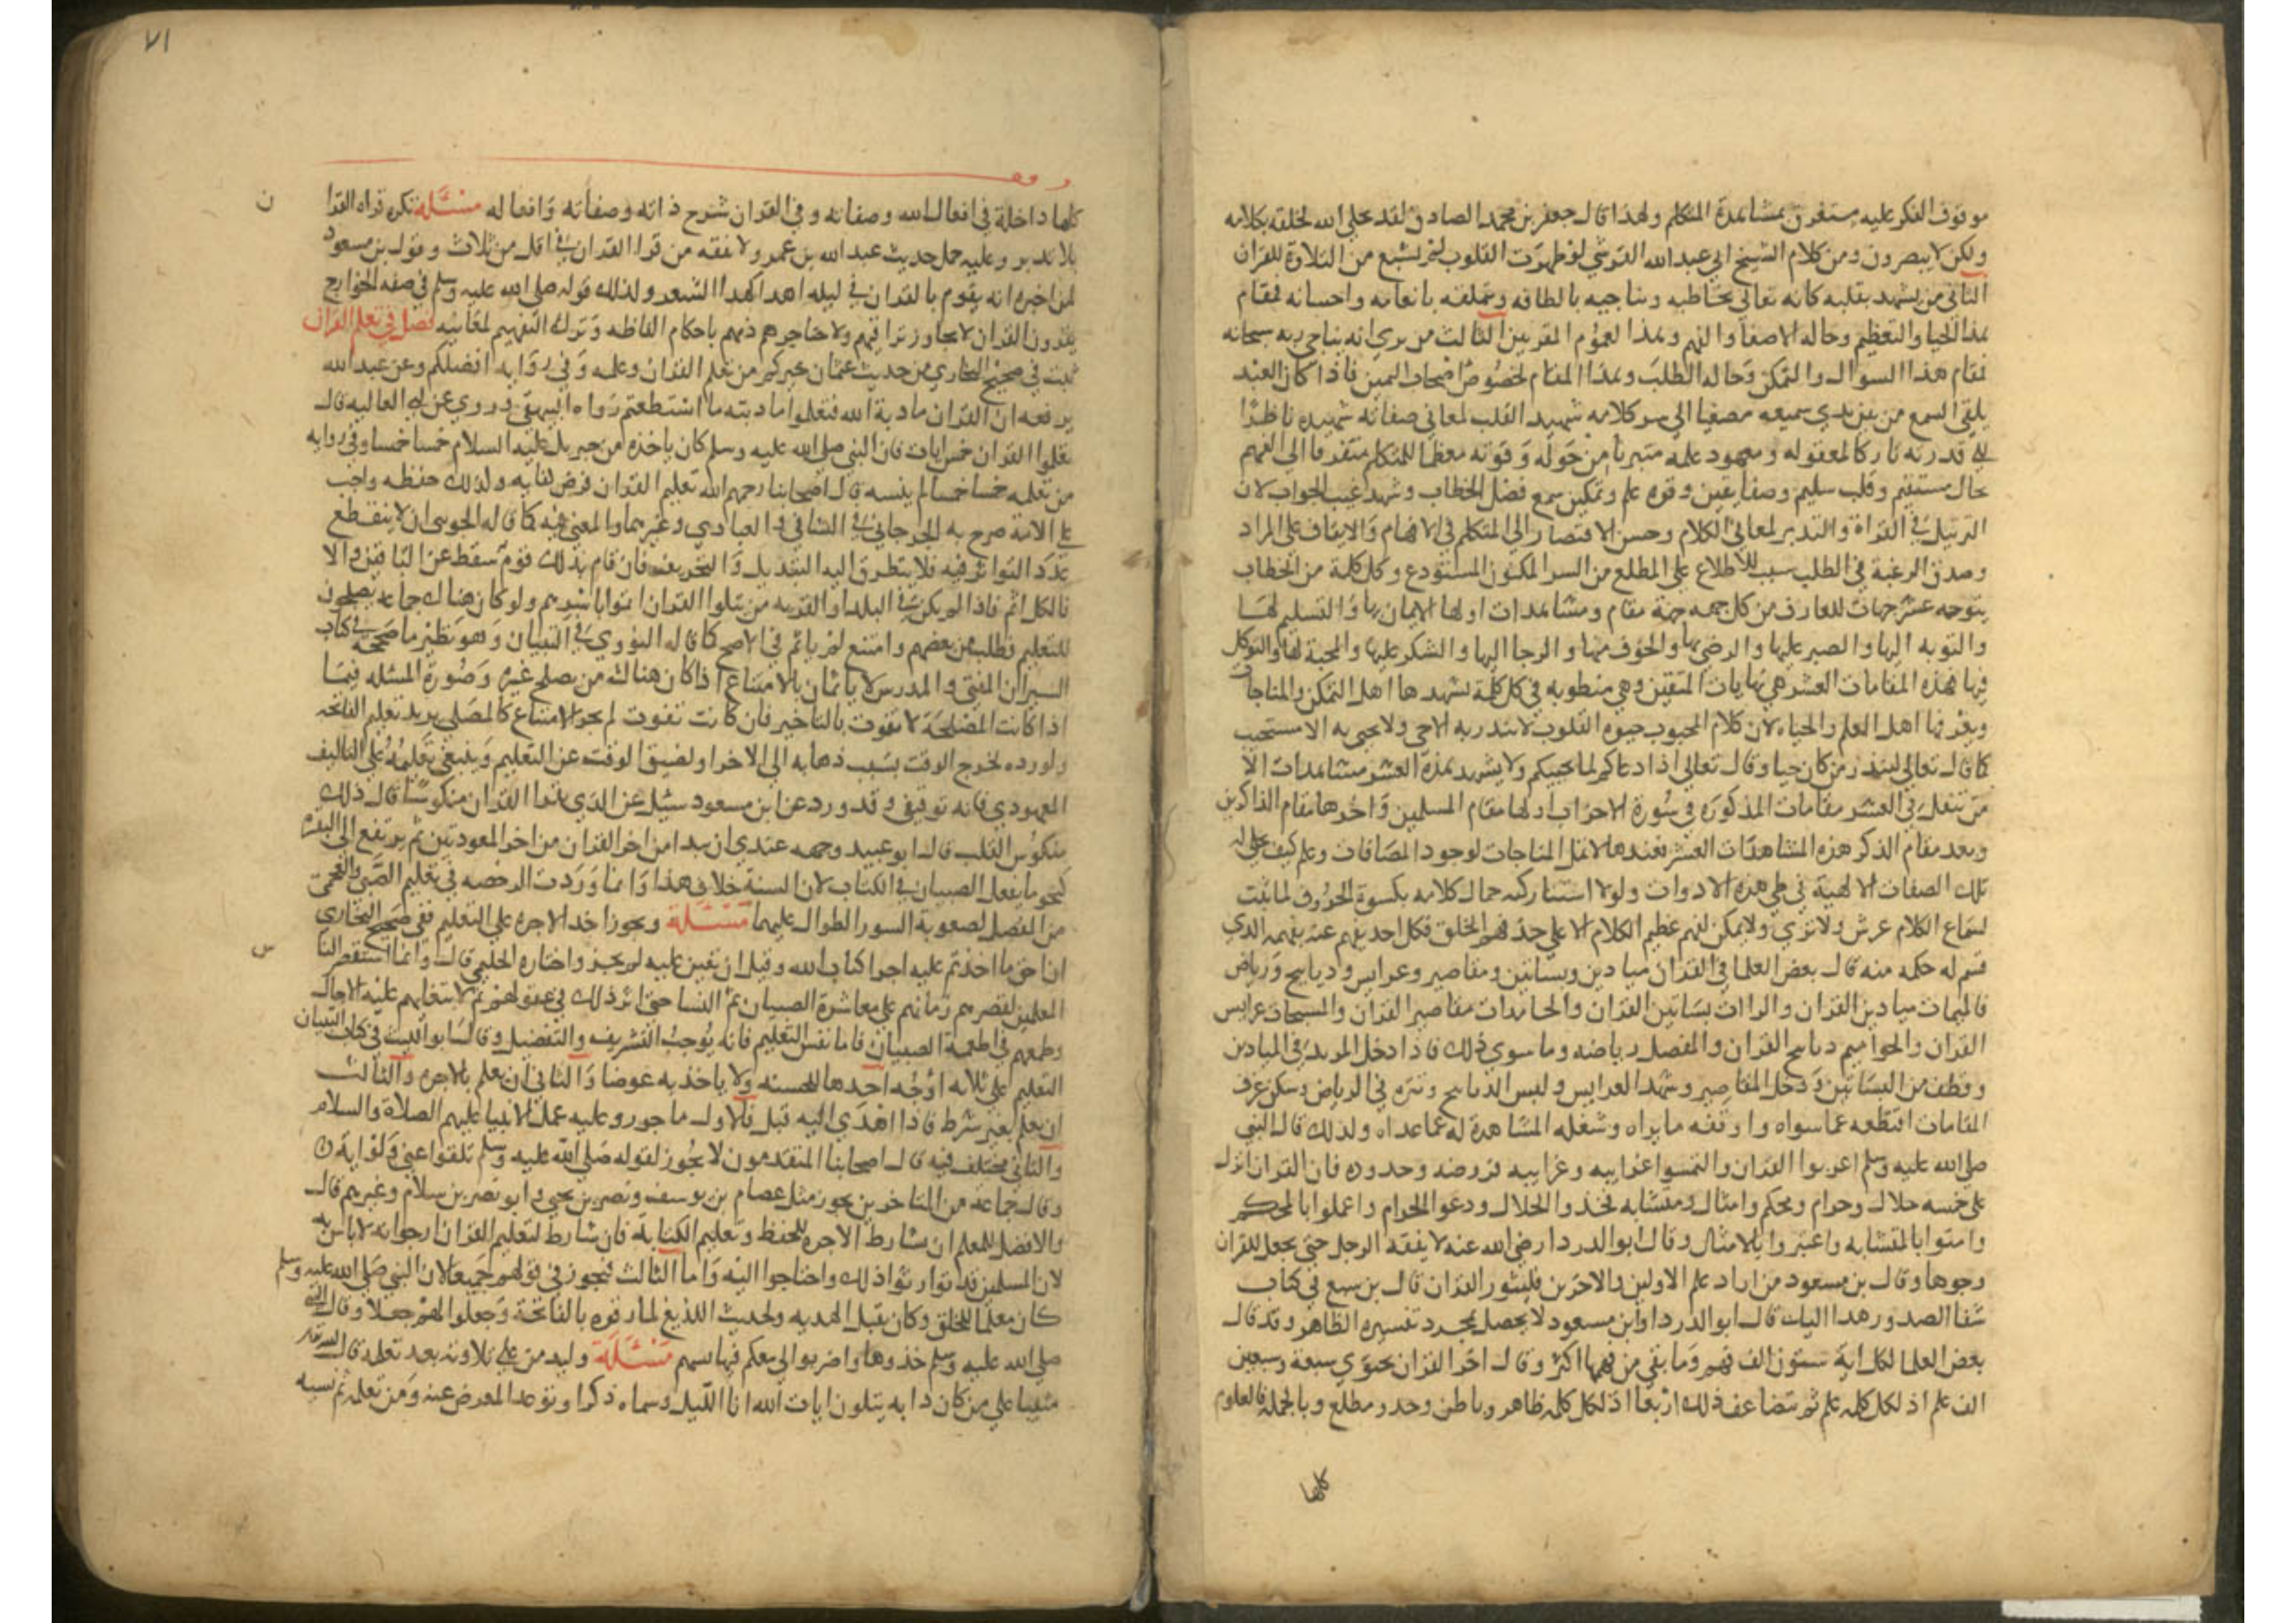 موقوف الفكر عليه مستغرق بمشاهدة المتكلم ولهذا قال جعفر بن محمد الصادق لقد تجلى الله لخلقه بكلامه
ولكن لا يبصرون ومن كلام الشيخ ابي عبد الله القرشي لو طهرت القلوب لم تشبع من التلاوة للقران
الثاني من يشهد بقلبه كانه تعالى يخاطبه ويناجيه بالطافه ويتملقه بانعامه واحسانه فمقام
هذا الحيا والتعظيم وحاله الاصغا والفهم وهذا لعموم المقربين الثالث من يري انه يناجي ربه سبحانه
فمقام هذا السوال والتمكن وحاله الطلب وهذا المقام لخصوص اصحاب اليمين فاذا كان العبد
يلقي السمع من بين يدي سميعه مصغيا الى سر كلامه شهيد القلب لمعاني صفاته شهيده ناظرا
الى قدرته تاركا لمعقوله ومعهود علمه متبريا من حوله وقوته معظما للمتكلم متفرقا الى الفهم
بحال مستقيم وقلب سليم وصفا يقين وقوه علم وتمكين سمع فصل الخطاب وشهد غيب الجواب لان
الترتيل في القراة والتدبر لمعاني الكلام وحسن الاقتصار الى المتكلم في الافهام والايقاف على المراد
وصدق الرغبة في الطلب سبب للاطلاع على المطلع من السر المكنون المستودع وكل كلمة من الخطاب
يتوجه عشر جهات للعارف من كل جهه جهة مقام ومشاهدات اولها الايمان بها والتسليم لها
والتوبه اليها والصبر عليها والرضي بها والخوف منها والرجا اليها والشكر عليها والمحبة لها والتوكل
فيها فهذه المقامات العشر هي نهايات المتقين وهي منطويه في كل كلمة يشهدها اهل التمكن والمناجاة
ويعرفها اهل العلم والحياه لان كلام المحبوب حيوه القلوب لا ينذر به الا حي ولا يحيى به الا مستجيب
كما قال تعالى لينذر من كان حيا وقال تعالى اذا دعاكم لما يحييكم ولا يشهد هذه العشر مشاهدات الا
من تنقل في العشر مقامات المذكوره في سورة الاحزاب اولها مقام المسلمين واخرها مقام الذاكرين
وبعد مقام الذكر هذه المشاهدات العشر فعندها لا تمل المناجات لوجود المصافات وعلم كيف تجلى له
تلك الصفات الالهية في طي هذه الادوات ولولا استتار كنه جمال كلامه بكسوة الحروف لما ثبت
لسماع الكلام عرش ولا ثري ولا يمكن لفهم عظيم الكلام الا على حد فهم الخلق فكل احد يفهم عنه بفهمه الذي
قسم له حكمه منه قال بعض العلما في القران ميادين وبساتين ومقاصير وعرايس وديابيح ورياض
فالميمات ميادين القران والراات بساتين القران والحامدات مقاصير القران والمسبحات عرايس
القران والحواميم ديابيح القران والمفصل رياضه وما سوى ذلك فاذا دخل المريد في الميادين
وقطف من البساتين ودخل المقاصير وشهد العرايس ولبس الديابيح وتنزه في الرياض وسكن غرف
المقامات اقتطعه عما سواه واوقفه ما يراه وشغله المشاهدة له عما عداه ولذلك قال النبي
صلى الله عليه وسلم اعربوا القران والتمسوا غرايبه وغرايبه فروضه وحدوده فان القران انزل
على خمسه حلال وحرام ومحكم وامثال ومتشابه فخذوا الحلال ودعوا الحرام واعملوا بالمحكم
وامنوا بالمتشابه واعتبروا بالامثال وقال ابو الدردا رضي الله عنه لا يفقه الرجل حتى يجعل للقران
وجوها وقال بن مسعود من اراد علم الاولين والاخرين فليثور القران قال بن سبع في كتاب
شفا الصدور هذا الباب قال ابو الدردا وابن مسعود لا يحصل بمجرد تفسيره الظاهر وقد قال
بعض العلما لكل اية ستون الف فهم وما بقي من فهمها اكثر وقال اخر القران يحتوي سبعة وسبعين
الف علم اذ لكل كلمه علم ثم يتضاعف ذلك اربعا اذ لكل كلمه ظاهر وباطن وحد ومطلع وبالجملة فالعلوم
كلها
٧١
كلها داخلة في افعال الله وصفاته وفي القران شرح ذاته وصفاته وافعاله مسئلة تكره قراه القرا
ن
بلا تدبر وعليه حمل حديث عبد الله بن عمرو لا يفقه من قرا القران في اقل من ثلاث وقول بن مسعود
لمن اخبره انه يقوم بالقران في ليله اهذا كهذا الشعر ولذلك قوله صلى الله عليه وسلم في صفه الخوارج
يقرون القران لا يجاوز تراقيهم ولا حناجرهم ذمهم باحكام الفاظه وترك التفهم لمعانيه فصل في تعلم القران
ثبت في صحيح البخاري من حديث عثمان خيركم من تعلم القران وعلمه وفي روايه افضلكم وعن عبد الله
يرفعه ان القران مادبة الله فتعلموا مادبته ما استطعتم رواه البيهقي وروي عن ابي العاليه قال
تعلموا القران خمس ايات فان النبي صلى الله عليه وسلم كان ياخذه من جبريل عليه السلام خمسا خمسا وفي روايه
من تعلمه خمسا خمسا لم ينسه قال اصحابنا رحمهم الله تعليم القران فرض كفايه ولذلك حفظه واجب
على الامة صرح به الجرجاني في الشافي والعبادي وغيرهما والمعني فيه كما قاله الجويني ان لا ينقطع
عدد التواتر فيه فلا يتطرق اليه التبديل والتحريف فان قام بذلك قوم سقط عن الباقين والا
فالكل اثم فاذا لم يكن في البلد او القريه من يتلوا القران اثموا باسرهم ولو كان هناك جماعه يصلحون
للتعليم وطلب من بعضهم وامتنع لم ياثم في الاصح كما قاله النووي في التبيان وهو نظير ما صححه في كتاب
السير ان المفتي والمدرس لا ياثمان بالامتناع اذا كان هناك من يصلح غيره وصورة المسئله فيما
اذا كانت المصلحة لا تفوت بالتاخير فان كانت تفوت لم يجز الامتناع كالمصلي يريد تعلم الفاتحه
ولو رده لخرج الوقت بسبب ذهابه الى الاخر او لضيق الوقت عن التعليم وينبغي تعليمه على التاليف
المعهود ي فانه توقيفي وقد ورد عن ابن مسعود سئل عن الذي يقرا القران منكوسا قال ذلك
منكوس القلب قال ابو عبيد وجهه عندي ان يبدا من اخر القران من اخر المعوذتين ثم يرتفع الى البقرة
كنحو ما يفعل الصبيان في الكتاب لان السنة خلاف هذا وانما وردت الرخصه في تعليم الصبي والعجمي
من المفصل لصعوبة السور الطوال عليهما مسئلة ويجوز اخذ الاجره على التعليم ففي صحيح البخاري
ان احق ما اخذتم عليه اجرا كتاب الله وقيل ان تعين عليه لم يجز واختاره الحليمي قال وانما استقصر النا
س
المعلمين لقصرهم زمانهم على معاشرة الصبيان ثم النسا حتى اثر ذلك في عقولهم ثم لابتغايهم عليه الاجعال
وطمعهم في اطعمة الصبيان فاما نفس التعليم فانه يوجب التشريف والتفضيل وقال ابو الليث في كتاب التبيان
التعليم على ثلاثه اوجه احدها للحسبه ولا ياخذ به عوضا والثاني ان يعلم بالاجره والثالث
ان يعلم بغير شرط فاذا اهدي اليه قبل فالاول ماجور وعليه عمل الانبيا عليهم الصلاة والسلام
والثاني مختلف فيه قال اصحابنا المتقدمون لا يجوز لقوله صلى الله عليه وسلم بلغوا عني ولو اية
وقال جماعة من المتاخرين يجوز مثل عصام بن يوسف ونصر بن يحيى وابو نصر بن سلام وغيرهم قال
والافضل للمعلم ان يشارط الاجره للحفظ وتعليم الكتابة فان شارط لتعليم القران ارجوا انه لا باس به
لان المسلمين قد توارثوا ذلك واحتاجوا اليه واما الثالث فيجوز في قولهم جميعا لان النبي صلى الله عليه وسلم
كان معلما للخلق وكان يقبل الهديه ولحديث اللذيغ لما رقوه بالفاتحة وجعلوا لهم جعلا وقال النبي
صلى الله عليه وسلم خذوها واضربوا لي معكم فيها بسهم مسئلة وليدمن على تلاوته بعد تعلمه قال الله تعالى
مثنيا على من كان دابه يتلون ايات الله انا الليل وسماه ذكرا وتوعد المعرض عنه ومن تعلمه ثم نسيه